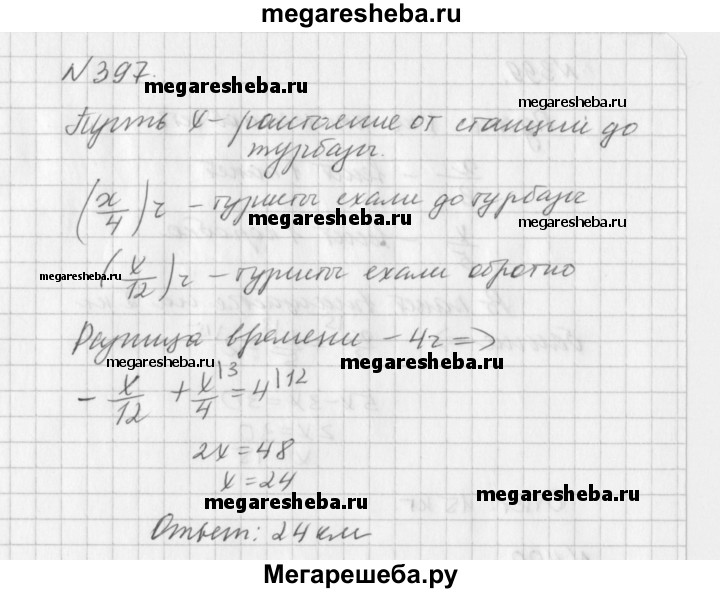 megaresheba.ru
№397.
megaresheba.ru
megaresheba.ru
Пусть x - расстояние от станции до
турбазы.
(x/4) ч - туристы ехали до турбазы
megaresheba.ru
megaresheba.ru
megaresheba.ru
(x/12) ч - туристы ехали обратно
Разница времени - 4ч =>
megaresheba.ru
megaresheba.ru
- x/12 + x/4 |3 = 4 |12
2x = 48
x = 24
megaresheba.ru
megaresheba.ru
Ответ: 24 км
Мегарешеба.ру